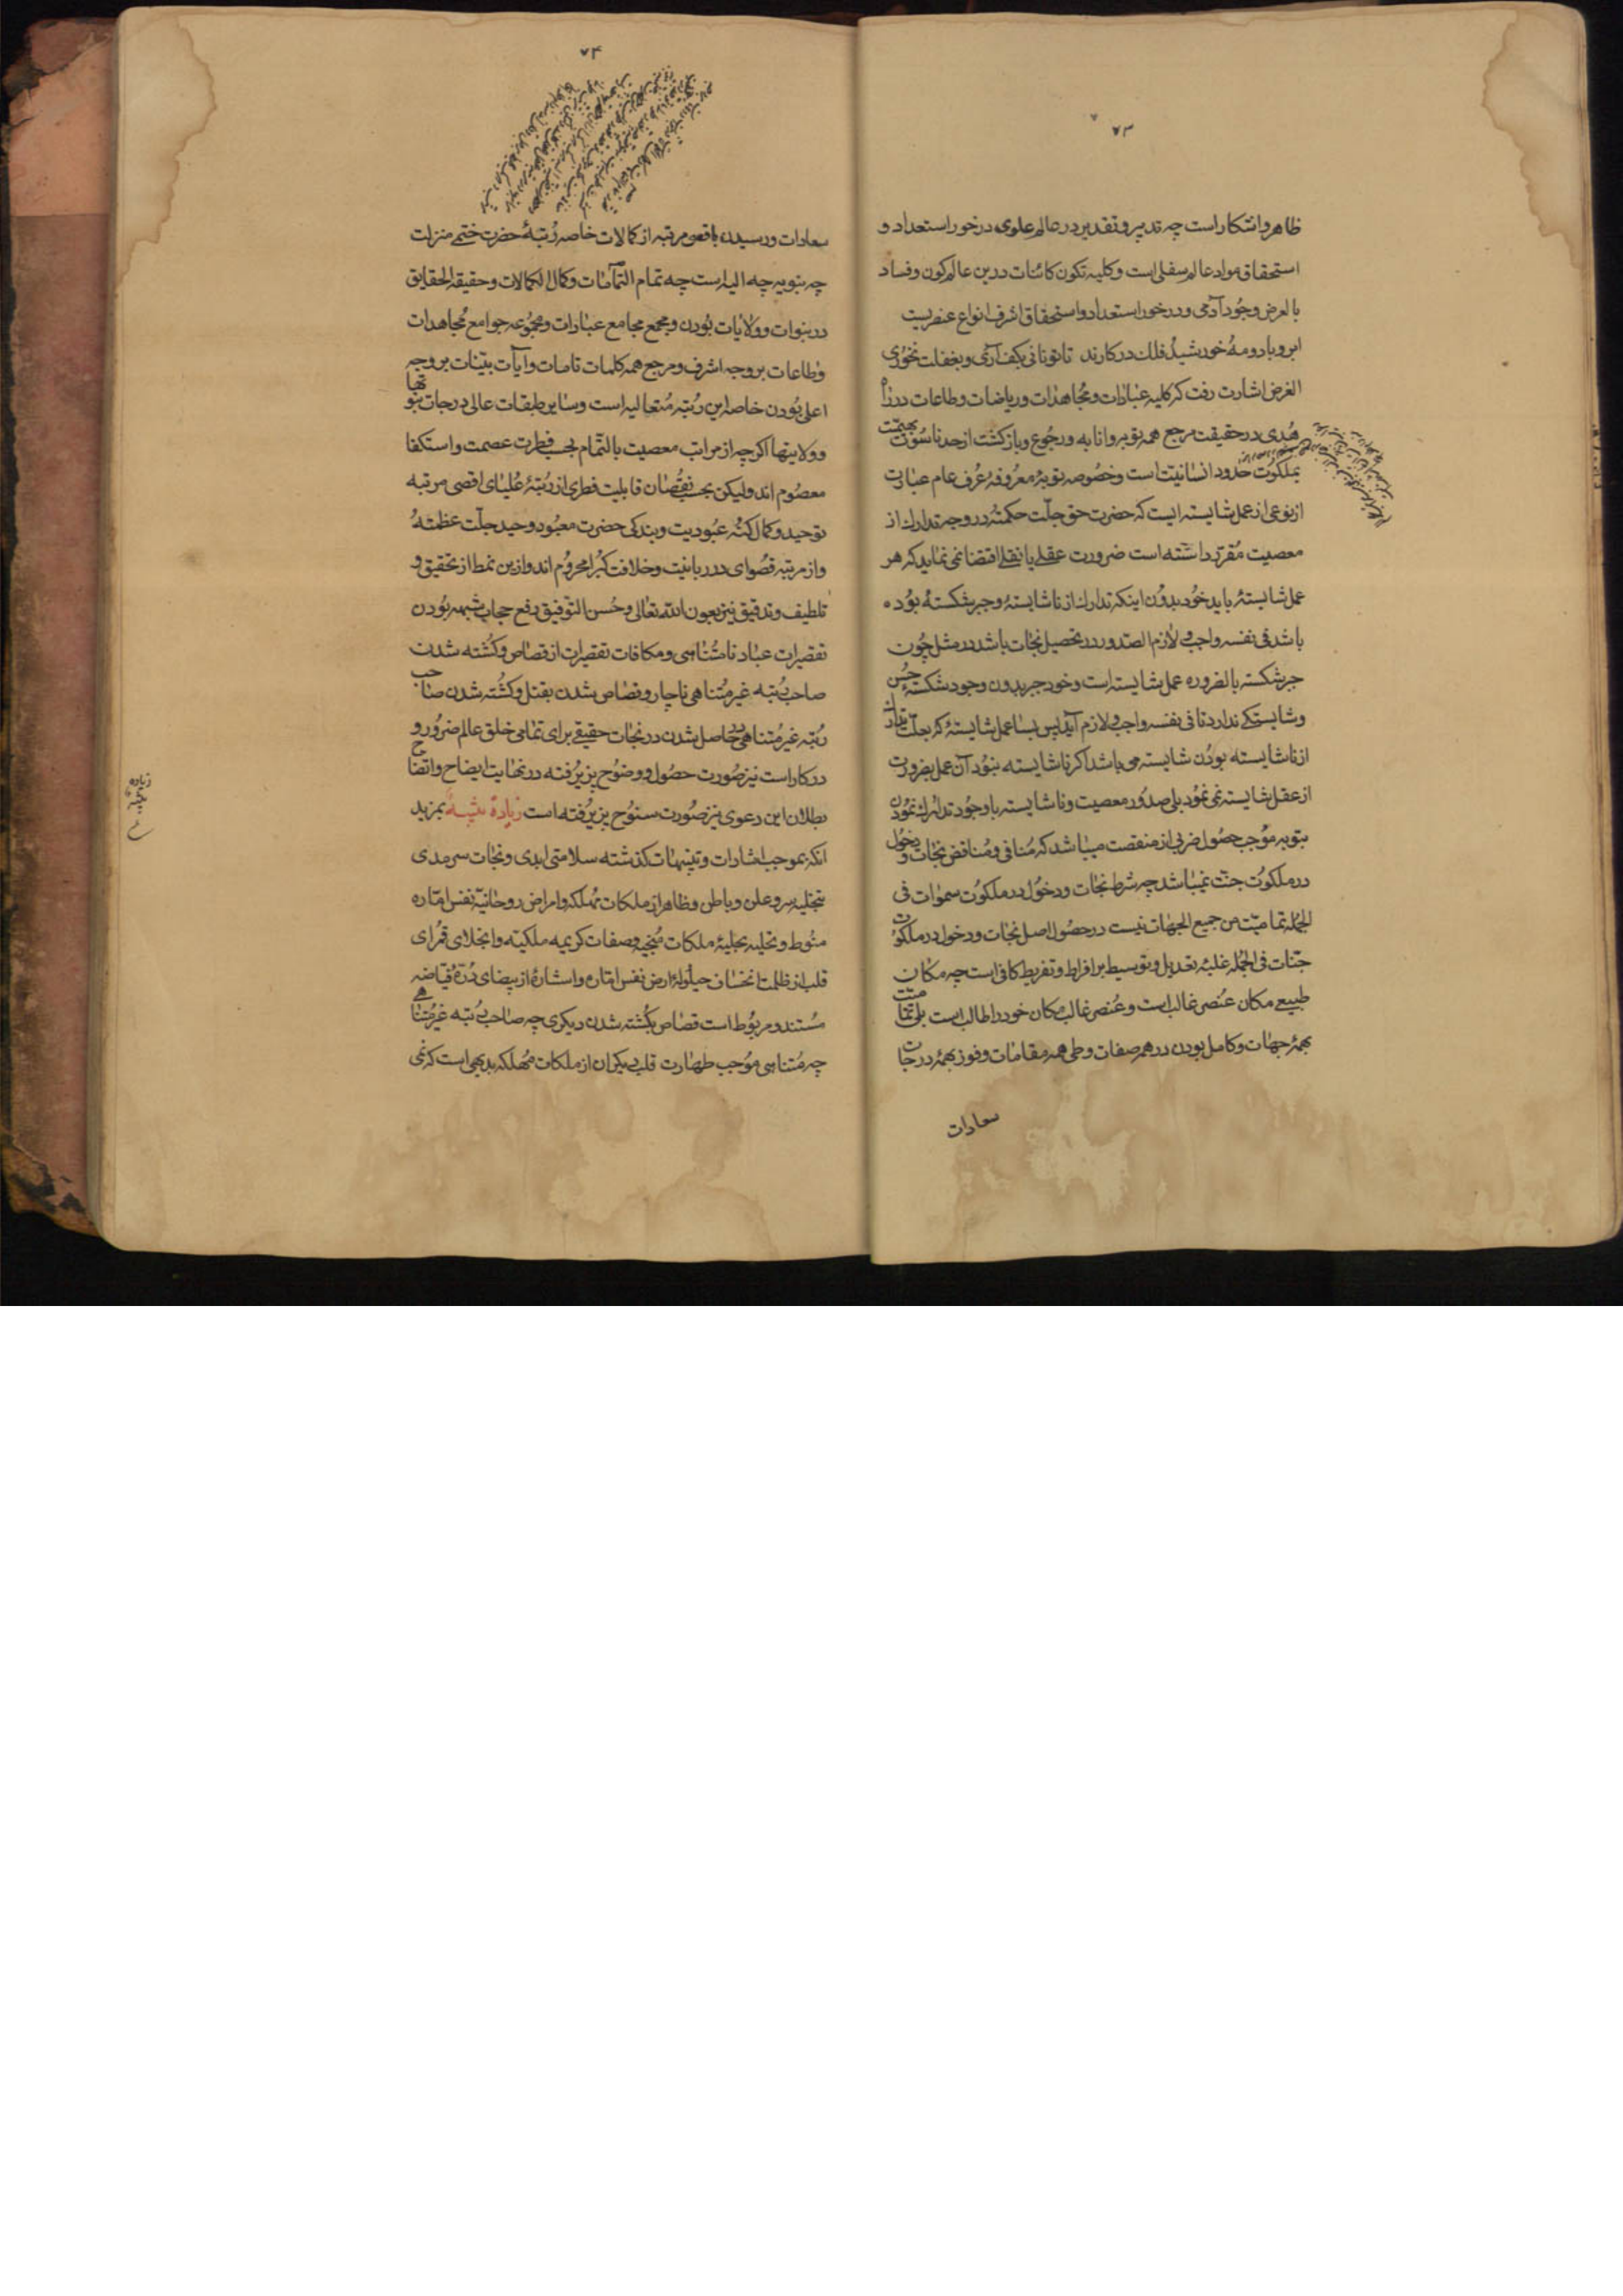 ۷۳
ظاهر و اشکار است چه تدبیر و تقدیر در عالم علوی در خور استعداد و
استحقاق مواد عالم سفلی است و کلیه تکون کائنات در این عالم کون و فساد
بالعرض وجود آدمی و در خور استعداد و استحقاق اشرف انواع عنصریست
ابر و باد و مه خورشید فلک در کارند تا تو نانی بکف آری و بغفلت نخوری
الغرض اشارت رفت که کلیه عبادات و مجاهدات و ریاضات و طاعات در راه
هدی در حقیقت مرجع همه توبه و انابه و رجوع و بازکشت از حد ناسوت بهیمیت
بملکوت حدود انسانیت است و خصوصه توبهٔ معروفهٔ عرف عام عبارت
از نوعی از عمل شایسته ایست که حضرت حق جلّت حکمته در وجه تدارک از
معصیت مقرر داشته است ضرورت عقلی یا نقلی اقتضا نمی نماید که هر
عمل شایستهٔ باید خود بدون اینکه تدارک از ناشایستهٔ و جبر شکستهٔ بوده
باشد فی نفسه واجب و لازم الصدور در تحصیل نجات باشد در مثل چون
جبر شکسته بالضروره عمل شایسته است و خود جبر بدون وجود شکستهٔ حُسن
و شایستکی ندارد تا فی نفسه واجب و لازم آید پس بسا عمل شایستهٔ که بعلت تدارک
از ناشایسته بودن شایسته می باشد اکر ناشایسته نبود آن عمل بضرورت
از عقل شایسته نمی نمود بلی صدور معصیت و ناشایسته با وجود تدارک نمودن
بتوبه موجب حصول ضربی از منقصت میباشد که منافی و مناقض نجات و دخول
در ملکوت جنّت نمیباشد چه شرط نجات و دخول در ملکوت سموات فی
الجمله تمامیّت من جمیع الجهات نیست در حصول اصل نجات و دخول در ملکوت
جنّات فی الجمله غلبهٔ تعدیل و توسیط بر افراط و تفریط کافی است چه مکان
طبیعی مکان عنصر غالب است و عنصر غالب مکان خود را طالب است بلی تمامیّت
بهمهٔ جهات و کامل بودن در همه صفات و طی همه مقامات و فوز بهمهٔ درجات
سعادات
۷۴
سعادات و رسیدن باقصی مرتبه از کمالات خاصه رُتبهٔ حضرت ختمی منزلت
چه بتوبه چه الیه است چه تمام التمامات و کمال الکمالات و حقیقة الحقایق
در نبوات و ولایات بودن و مجمع مجامع عبادات و مجموعه جوامع مجاهدات
و طاعات بر وجه اشرف و مرجع همه کلمات تامات و آیات بیّنات بر وجه
اعلی بودن خاصه این رتبه متعالیه است و سایر طبقات عالی درجات نبوتها
و ولایتها اکرچه از مراتب معصیت بالتمام بحسب فطرت عصمت و استکفا
معصوم اند ولیکن بحسب نقصان قابلیت فطری از رتبهٔ علیای اقصی مرتبه
توحید و کمال کنه عبودیت و بندکی حضرت معبود وحید جلّت عظمته
و از مرتبه قصوای در ربانیت و خلافت کبرا محروم اند و ازین نمط از تحقیق و
تلطیف و تدقیق نیز بعون الله تعالی و حُسن التوفیق رفع حجاب شبهه بودن
تقصیرات عباد نامتناهی و مکافات تقصیرات از قصاص و کشته شدن
صاحب رتبه غیر متناهی ناچار و قصاص شدن بقتل و کشته شدن صاحب
رتبه غیر متناهی حاصل شدن در نجات حقیقی برای تمامی خلق عالم ضرور و
در کار است نیز صورت حصول و وضوح پزیرفته در نهایت ایضاح و اتضاح
بطلان این دعوی نیز صورت سنوح پزیرفته است زیادة تنبیه بمزید
انکه بموجب اشارات و تنبیهات کذشته سلامتی ابدی و نجات سرمدی
بتخلیه سر و علن و باطن و ظاهر از ملکات مهلکه و امراض روحانیّه نفس اماره
منوط و تحلیه بحلیهٔ ملکات منجیه و صفات کریمه ملکیّه و انجلای قمرای
قلب از ظلمت انخساف حیلولهٔ ارض نفس اماره و استنارهٔ از بیضای درّهٔ فیاضه
مستند و مربوط است قصاص بکشته شدن دیکری چه صاحب رتبه غیر متناهی
چه متناهی موجب طهارت قلب دیکران از ملکات مهلکه بدیهی است که نمی
زیاده
تنبیه